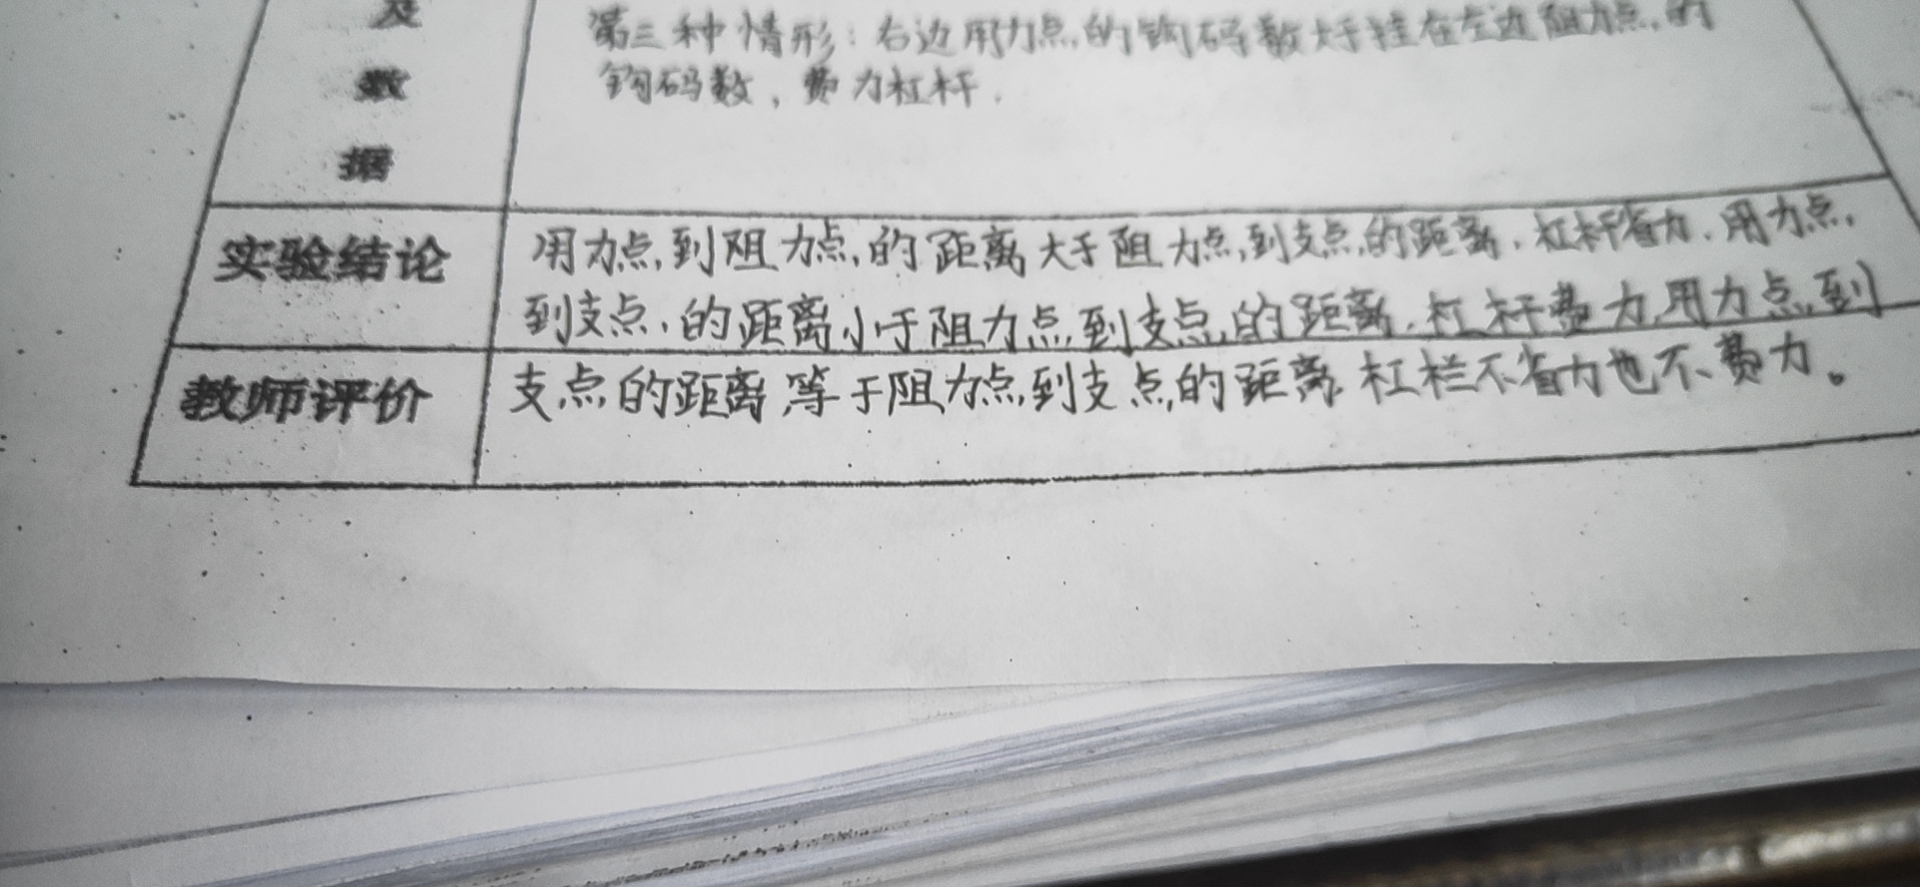 及
数
据
第三种情形：右边用力点的钩码数大于挂在左边阻力点的
钩码数，费力杠杆．
实验结论
用力点到阻力点的距离大于阻力点到支点的距离．杠杆省力．用力点
到支点的距离小于阻力点到支点的距离．杠杆费力用力点到
教师评价
支点的距离等于阻力点到支点的距离杠栏不省力也不费力。